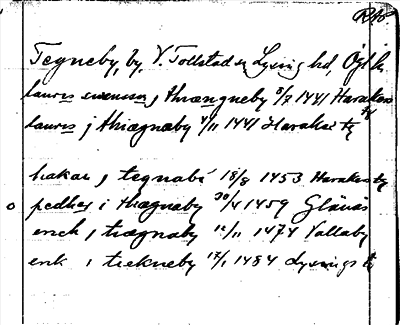 RA0
Tegneby, by, V. Tollstad sn Lysing hd, Ögl l.
lauris suensson j thrængneby 8/7 1441 Harakers
laures j thiægnæby 4/11 1441 Haraker tg
hakar j tegnabi 18/8 1453 Harakers tg
pedher i thægnaby 30/4 1459 Glänäs
erick j trægnaby 12/11 1474 Vallaby
erik i trekneby 17/1 1484 Lysings tg